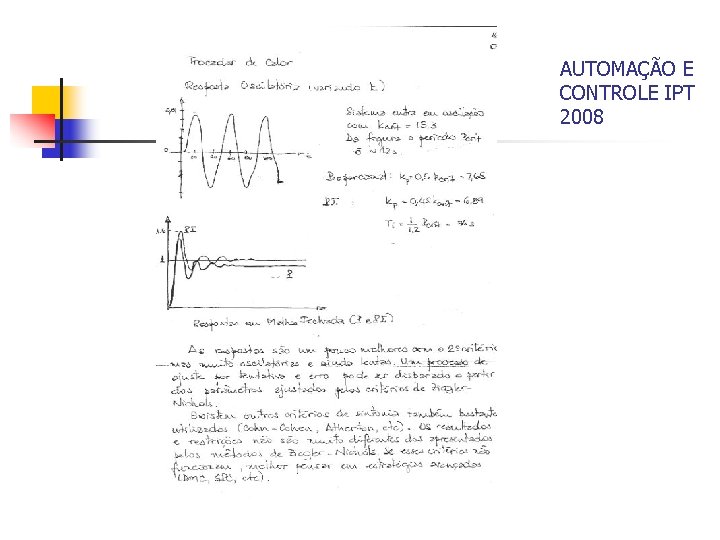 AUTOMAÇÃO E
CONTROLE IPT
2008
Trocador de Calor
Resposta Oscilatória (variando K)
Sistema entra em oscilação
com Kcrit = 15.3
Da figura o período Pcrit
é ~ 12 s
Proporcional: Kp = 0,5 Kcrit = 7,65
PI: Kp = 0,45 Kcrit = 6.89
Ti = 1/1,2 Pcrit =
1
PI
P
Respostas em Malha Fechada (P e PI)
As respostas são um pouco melhores com o 2º critério
mas muito oscilatórias e ainda lentas. Um processo de
ajuste por tentativa e erro pode ser disparado a partir
dos parâmetros ajustados pelos critérios de Ziegler-
Nichols.
Existem outros critérios de sintonia também bastante
utilizados (Cohn-Cohen, Atherton, etc). Os resultados
e restrições não são muito diferentes dos apresentados
pelos métodos de Ziegler-Nichols. Se esses critérios não
funcionam, melhor pensar em estratégias avançadas
(DMC, etc).